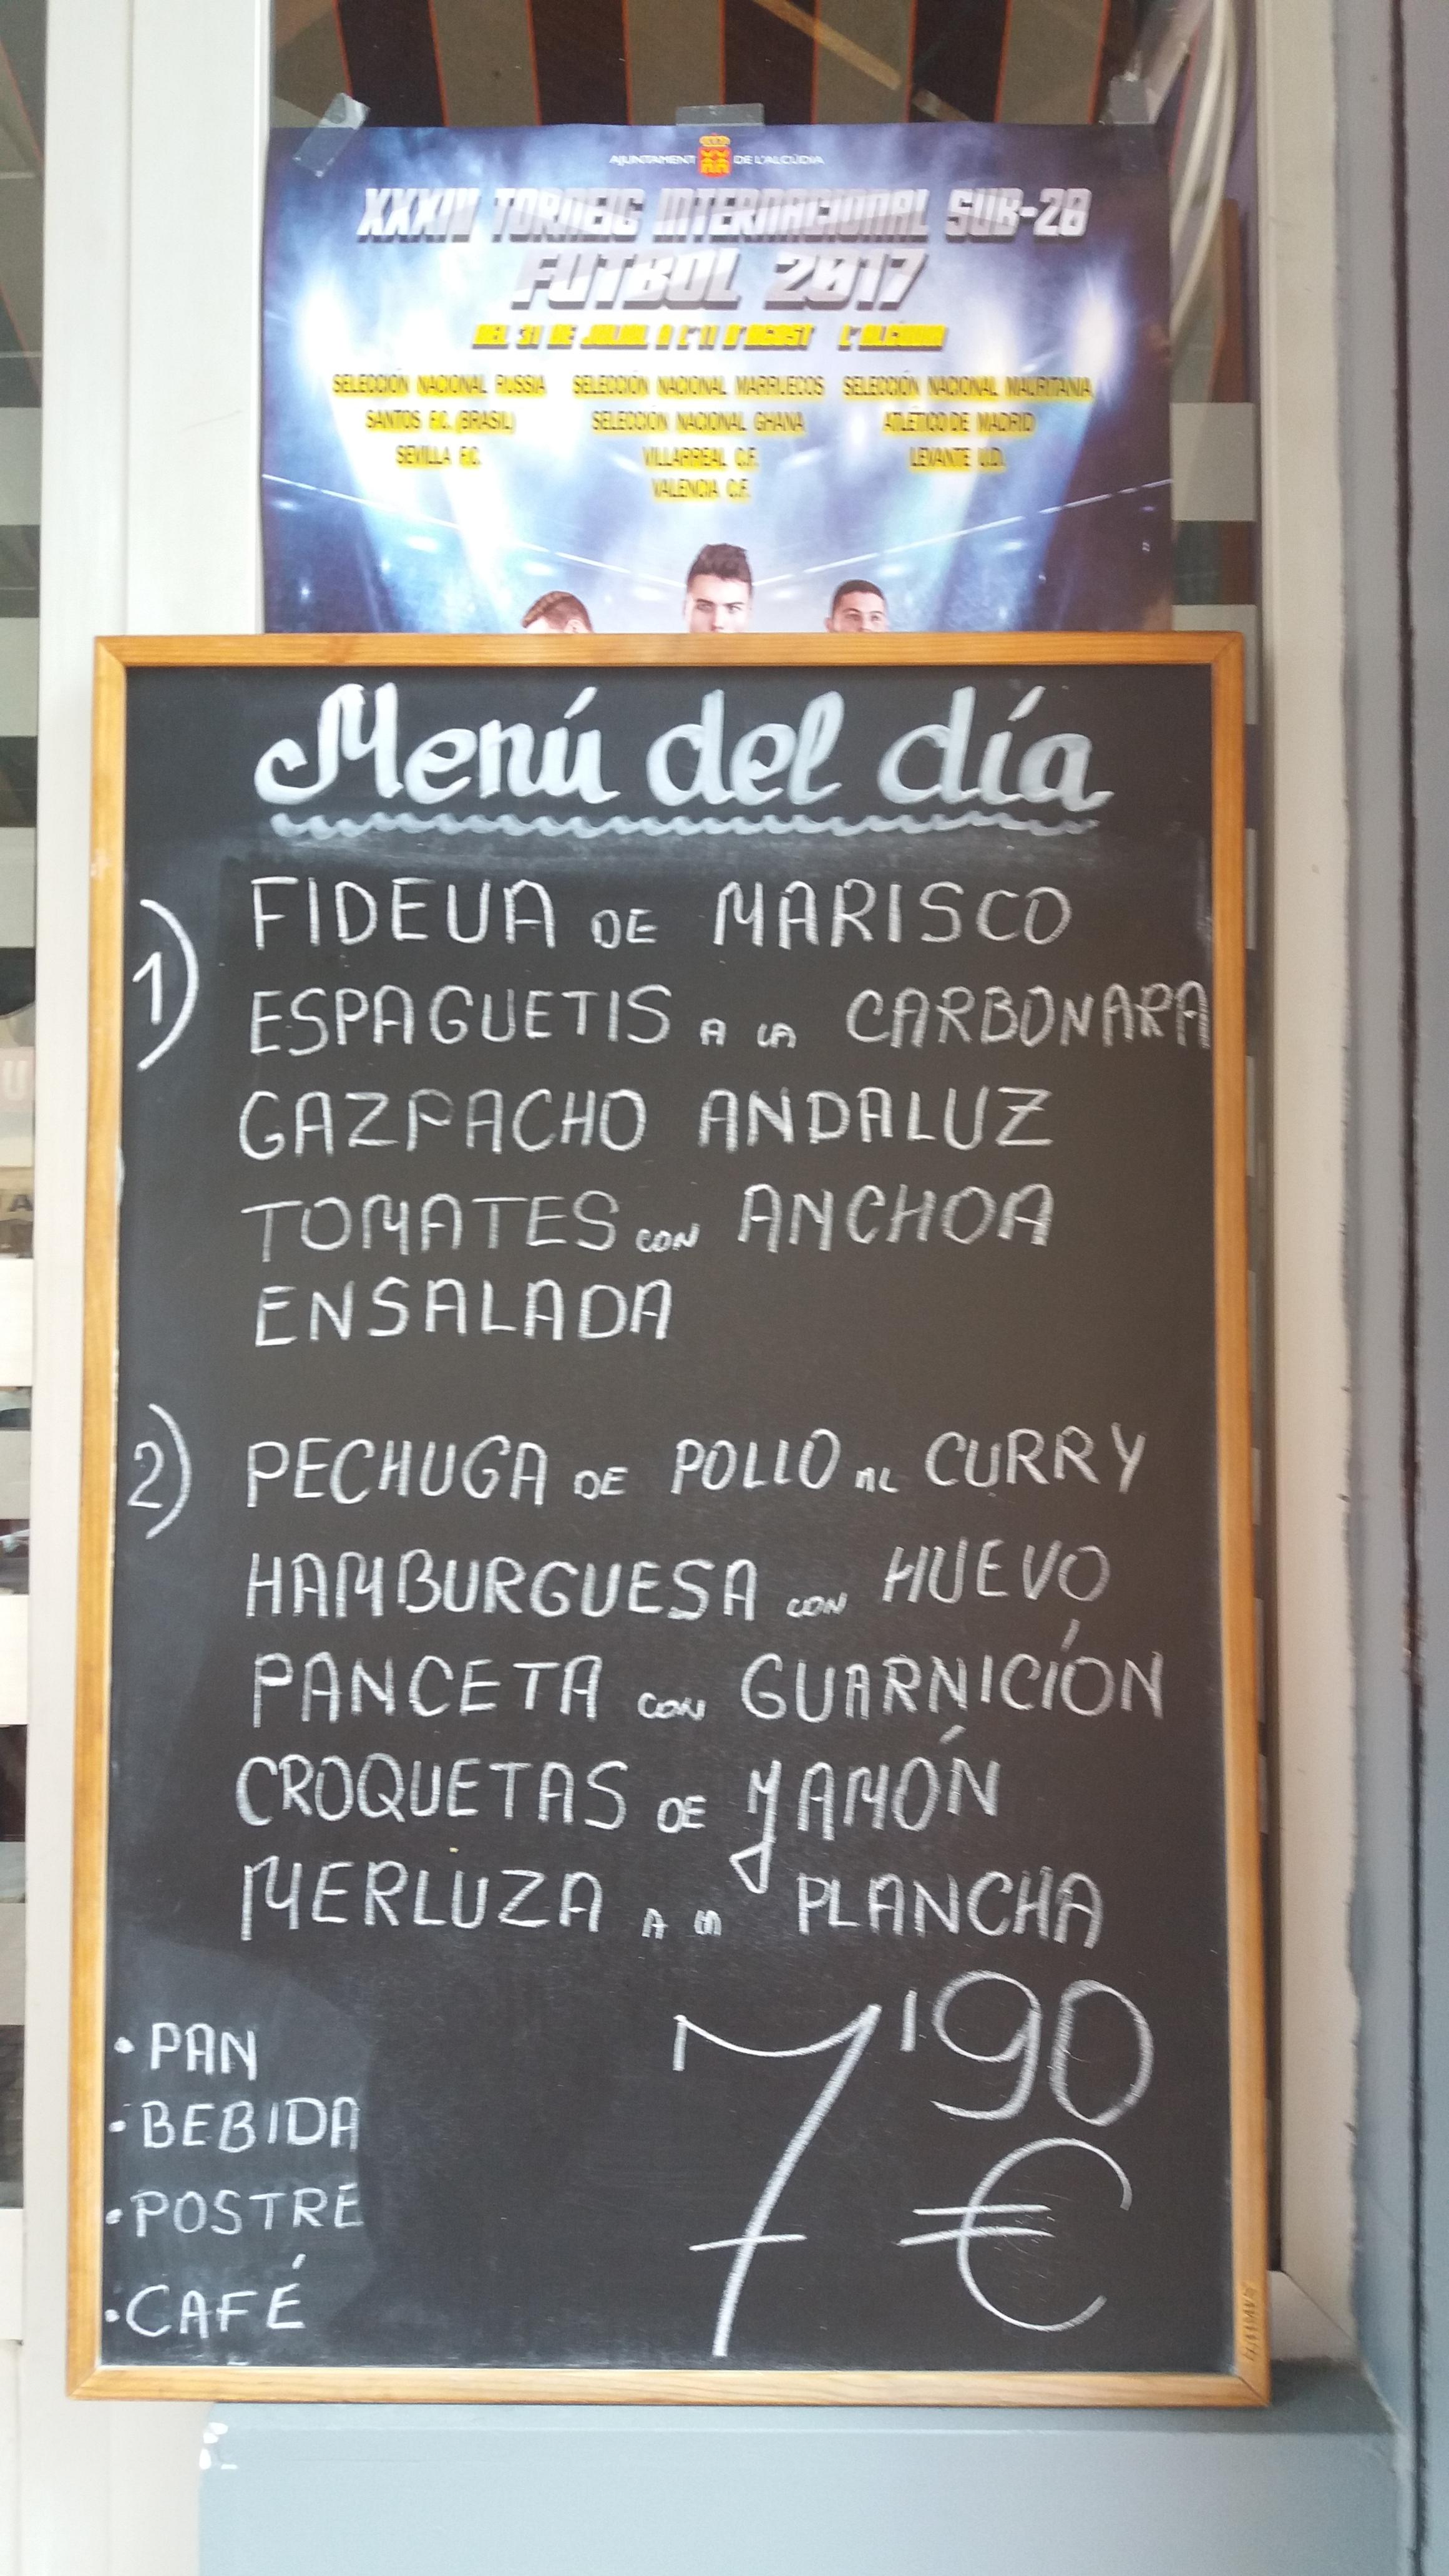 AJUNTAMENT DE L'ALCÚDIA
XXXIV TORNEIG INTERNACIONAL SUB-20
FUTBOL 2017
DEL 31 DE JULIOL A L'11 D'AGOST L'ALCÚDIA
SELECCIÓN NACIONAL RUSSIA SELECCIÓN NACIONAL MARRUECOS SELECCIÓN NACIONAL MAURITANIA
SANTOS F.C. (BRASIL) SELECCIÓN NACIONAL GHANA ATLÉTICO DE MADRID
SEVILLA F.C. VILLARREAL C.F. LEVANTE U.D.
VALENCIA C.F.
Menú del día
1) FIDEUA DE MARISCO
ESPAGUETIS A LA CARBONARA
GAZPACHO ANDALUZ
TOMATES CON ANCHOA
ENSALADA
2) PECHUGA DE POLLO AL CURRY
HAMBURGUESA CON HUEVO
PANCETA CON GUARNICIÓN
CROQUETAS DE JAMÓN
MERLUZA A LA PLANCHA
• PAN
• BEBIDA
• POSTRE
• CAFÉ
7'90 €